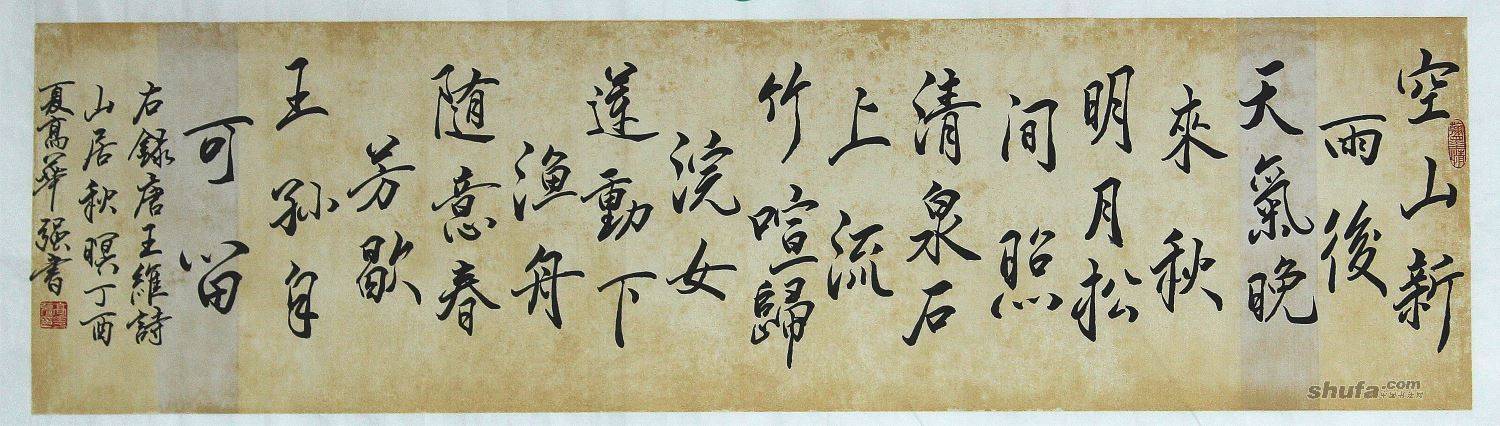 空山新
雨後
天氣晚
來秋
明月松
间照
清泉石
上流
竹喧歸
浣女
莲動下
渔舟
随意春
芳歇
王孙自
可留
右録唐王維詩
山居秋暝丁酉
夏高華强書
shufa.com